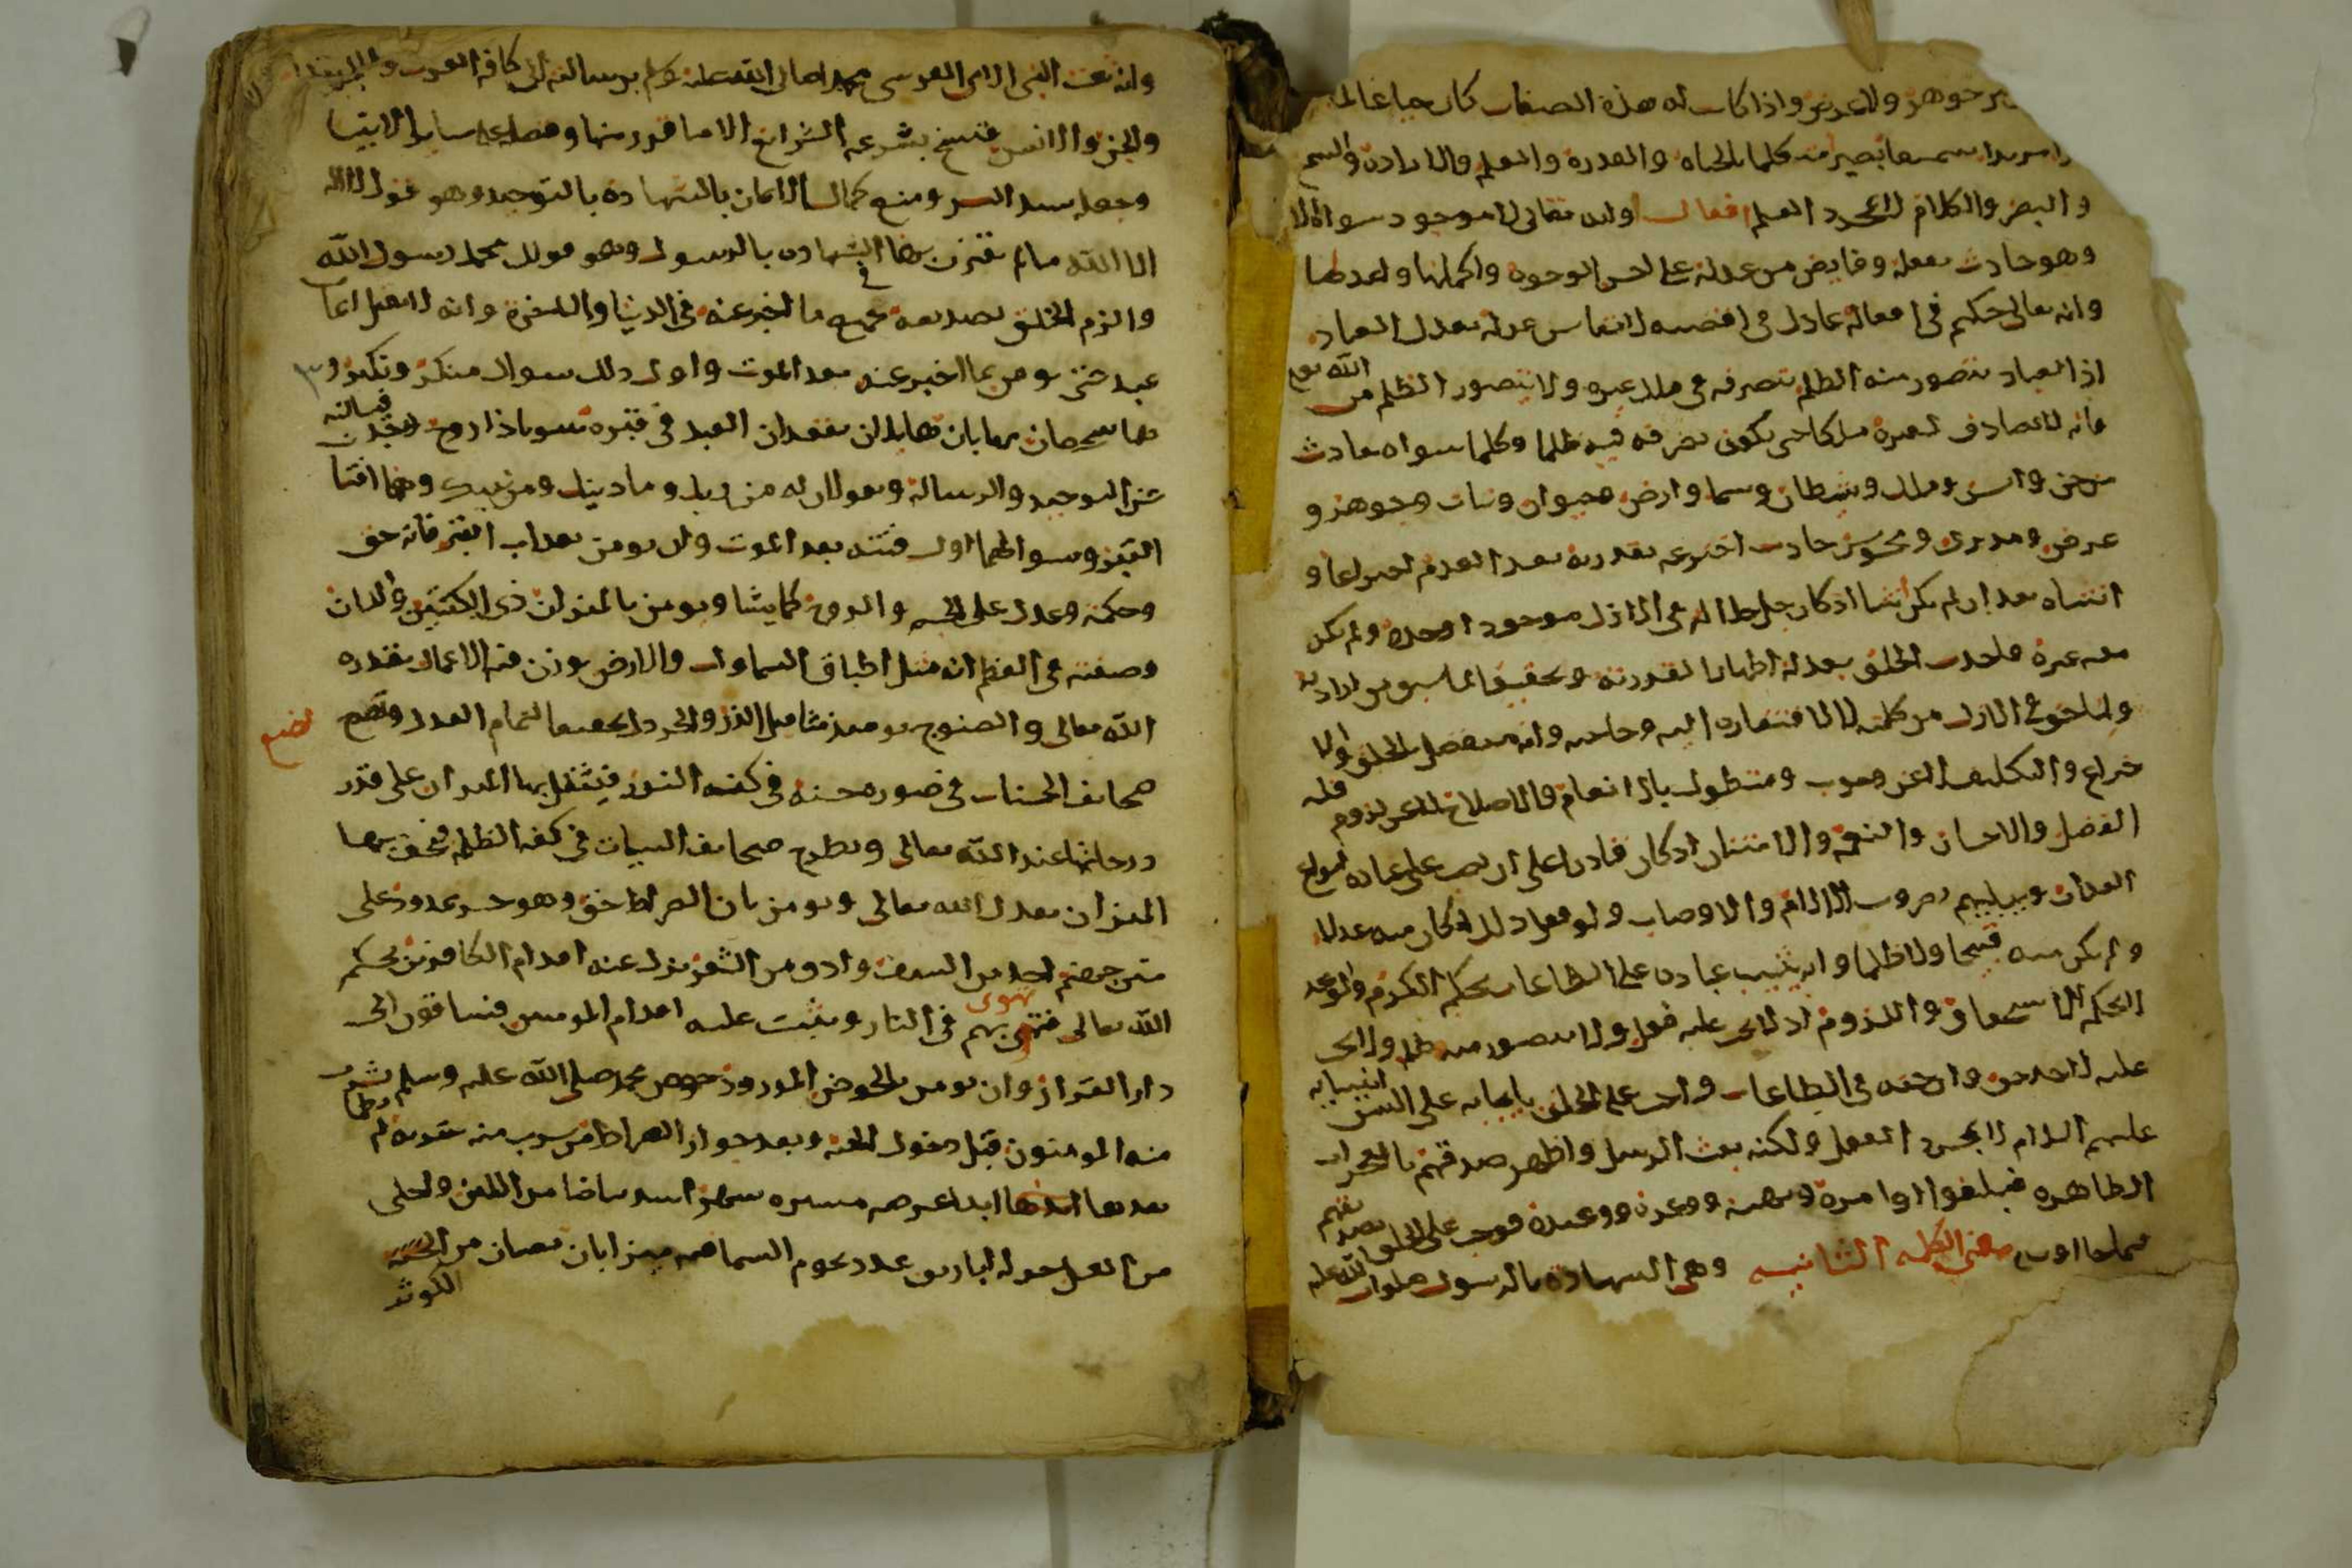 جوهر ولا عرض واذا كانت له هذه الصفات كان حيا عالما
مريدا سميعا بصيرا متكلما بالحياه والقدره والعلم والاراده والسمع
والبصر والكلام لا بمجرد العلم افعاله وانه تعالى لا موجود سواه الا
وهو حادث بفعله وفايض من عدله على احسن الوجوه واكملها واعدلها
وانه تعالى حكيم في افعاله عادل في اقضيته لا يقاس عدله بعدل العباد
اذ العباد يتصور منه الظلم بتصرفه في ملك غيره ولا يتصور الظلم من الله تعالى
فانه لا يصادف لغيره ملكا حتى يكون تصرفه فيه ظلما وكلما سواه حادث
من جن وانس وملك وشيطان وسما وارض وحيوان ونبات وجوهر و
عرض ومدرك ومحسوس حادث اخترعه بقدرته بعد العدم اختراعا و
انشاه بعد ان لم يكن شيا اذ كان في الازل موجودا وحده ولم يكن
معه غيره فاحدث الخلق بعد اظهارا لقدرته وتحقيقا لما سبق من ارادته
ولما حق في الازل من كلمته لا لافتقاره اليه وحاجته وانه متفضل بالخلق والا
ختراع والتكليف لا عن وجوب ومتطول بالانعام والاصلاح لا عن لزوم فله
الفضل والاحسان والنعمه والامتنان اذ كان قادرا على ان يصب على عباده انواع
العذاب ويبتليهم بضروب الالام والاوصاب ولو فعل ذلك لكان منه عدلا
ولم يكن منه قبيحا ولا ظلما وانه يثيب عباده على الطاعات بحكم الكرم والوعد
لا بحكم الاستحقاق واللزوم اذ لا يجب عليه فعل ولا يتصور منه ظلم ولا يجب
عليه لاحد حق وان حقه في الطاعات واجب على الخلق بايجابه على السن انبيايه
عليهم السلام لا بمجرد العقل ولكنه بعث الرسل واظهر صدقهم بالمعجزات
الظاهره فبلغوا اوامره ونهيه ووعده ووعيده فوجب على الخلق تصديقهم
فيما جاوا به معنى الكلمه الثانيه وهي الشهاده بالرسول صلوات الله عليه
وانه بعث النبي الامي القرشي محمدا صلى الله عليه وسلم برسالته الى كافه العرب والعجم
والجن والانس فنسخ بشرعه الشرايع الا ما قرر منها وفضله على ساير الانبيا
وجعله سيد البشر ومنع كمال الايمان بالشهاده بالتوحيد وهو قول لا اله
الا الله ما لم تقترن بها الشهاده بالرسول وهو قولك محمد رسول الله
والزم الخلق تصديقه في جميع ما اخبر عنه في الدنيا والاخرة وانه لا يقبل ايمان
عبد حتى يومن بما اخبر عنه بعد الموت واول ذلك سوال منكر ونكير و
هما شخصان مهابان هايلان يقعدان العبد في قبره سويا ذا روح وجسد فيسالانه
عن التوحيد والرسالة ويقولان له من ربك وما دينك ومن نبيك وهما فتانا
القبر وسوالهما اول فتنه بعد الموت وان يومن بعذاب القبر فانه حق
وحكمه وعدل على الجسم والروح كما يشا ويومن بالميزان ذي الكفتين واللسان
وصفته في العظم انه مثل اطباق السماوات والارض يوزن فيه الاعمال بقدره
الله تعالى والصنوج يوميذ مثاقيل الذر والخردل تحقيقا لتمام العدل وتضع
تضع
صحايف الحسنات في صوره حسنه في كفه النور فيثقل بها الميزان على قدر
درجاتها عند الله تعالى وتطرح صحايف السيات في كفه الظلمه فيخف بها
الميزان بعدل الله تعالى ويومن بان الصراط حق وهو جسر ممدود على
متن جهنم احد من السيف وادق من الشعر يزل عنه اقدام الكافرين بحكم
الله تعالى فتهوي بهم في النار ويثبت عليه اقدام المومنين فيساقون الى
تهوى
دار القرار وان يومن بالحوض المورود حوض محمد صلى الله عليه وسلم يشرب
منه المومنون قبل دخول الجنه وبعد جواز الصراط من شرب منه شربه لم يظما
بعدها ابدا عرضه مسيره شهر اشد بياضا من اللبن واحلى
من العسل حوله اباريق عدد نجوم السما فيه ميزابان يصبان من الجنه
الكوثر